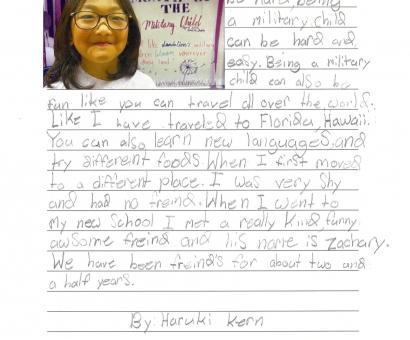 THE
Military Child
be hard being
a military child
can be hard and
easy. Being a military
child can also be
fun like you can travel all over the world.
Like I have traveled to Florida, Hawaii.
You can also learn new languages, and
try different foods. When I first moved
to a different place. I was very shy
and had no freind. When I went to
My new School I met a really Kind, funny,
awsome freind and his name is Zachary.
We have been freind's for about two and
a half years.
By: Haruki Kern